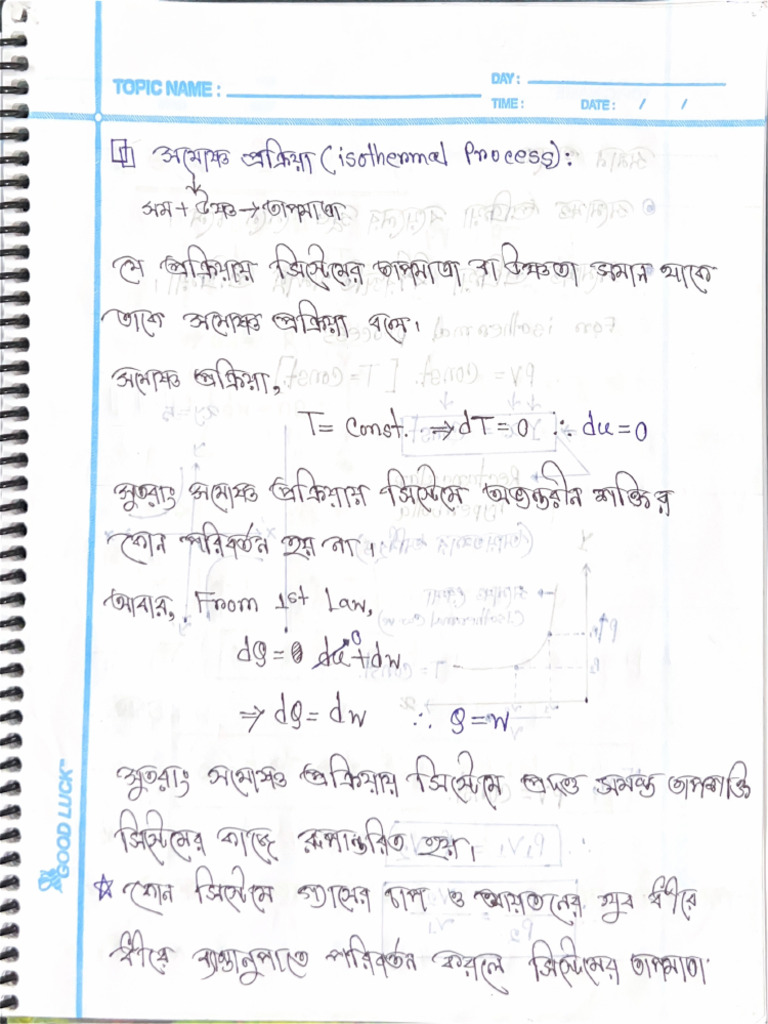 TOPIC NAME :
DAY :
TIME : DATE : / /
সমোষ্ণ প্রক্রিয়া (isothermal Process):
সম + উষ্ণ → তাপমাত্রা
যে প্রক্রিয়ায় সিস্টেমের তাপমাত্রা বা উষ্ণতা সমান থাকে
তাকে সমোষ্ণ প্রক্রিয়া বলে।
সমোষ্ণ প্রক্রিয়া,
T = Const. ⇒ dT = 0 ∴ du = 0
সুতরাং সমোষ্ণ প্রক্রিয়ায় সিস্টেমে অভ্যন্তরীন শক্তির
কোন পরিবর্তন হয় না।
আবার, From 1st Law,
dQ = du⁰ + dw
⇒ dQ = dw ∴ Q = w
সুতরাং সমোষ্ণ প্রক্রিয়ায় সিস্টেমে প্রদত্ত সমস্ত তাপশক্তি
সিস্টেমের কাজে রূপান্তরিত হয়।
☆ কোন সিস্টেমে গ্যাসের চাপ ও আয়তনের খুব ধীরে
ধীরে ব্যাস্তানুপাতে পরিবর্তন করলে সিস্টেমের তাপমাত্রা
GOOD LUCK™